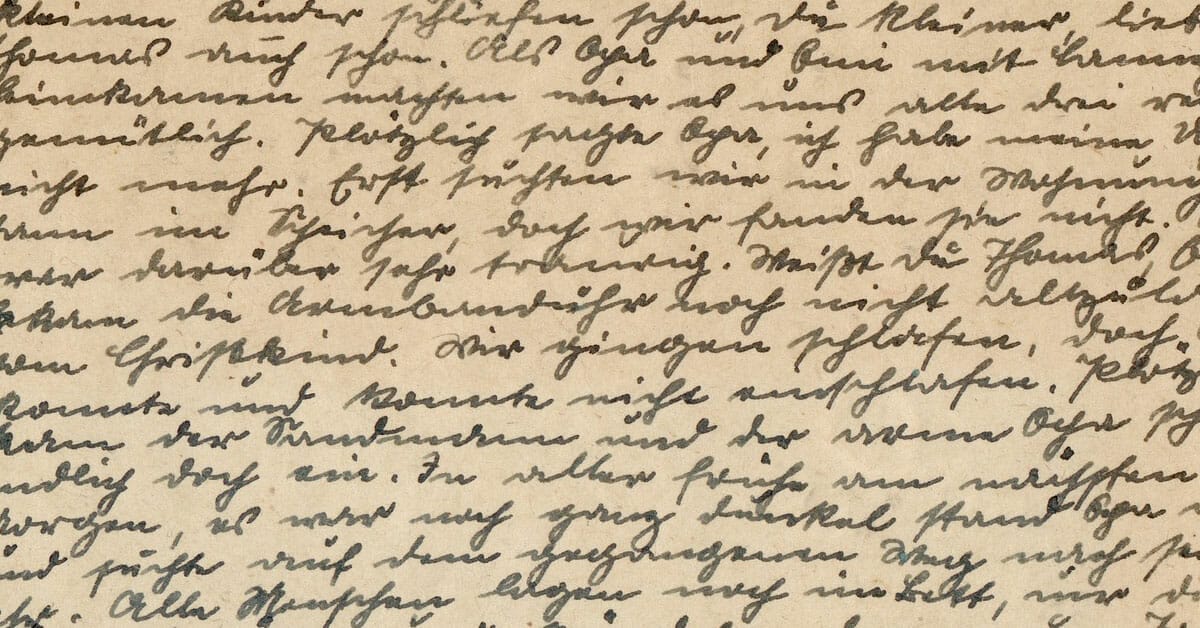 kleinen Kinder schliefen schon, du kleiner, lieb
Thomas auch schon. Als Opa und Omi mit
heimkamen machten wir es uns alle drei re
gemütlich. Plötzlich sagte Opa, ich habe meine U
nicht mehr. Erst suchten wir in der Wohnung
dann im Schicher, doch wir fanden sie nicht.
war darüber sehr traurig. Weißt du Thomas, O
bekam die Armbanduhr noch nicht allzula
vom Christkind. Wir gingen schlafen, doch
konnte und konnte nicht einschlafen. Plötz
kam der Sandmann und der arme Opa sch
endlich doch ein. In aller frühe am nächsten
Morgen, es war noch ganz dunkel stand Opa
und suchte auf dem gegangenen Weg nach se
Uhr. Alle Menschen lagen noch im Bett, nur d